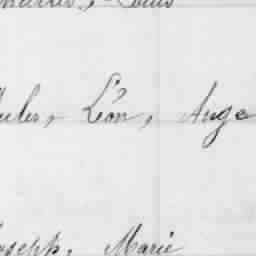 Louis
Jules, Léon, Ange
Joseph, Marie